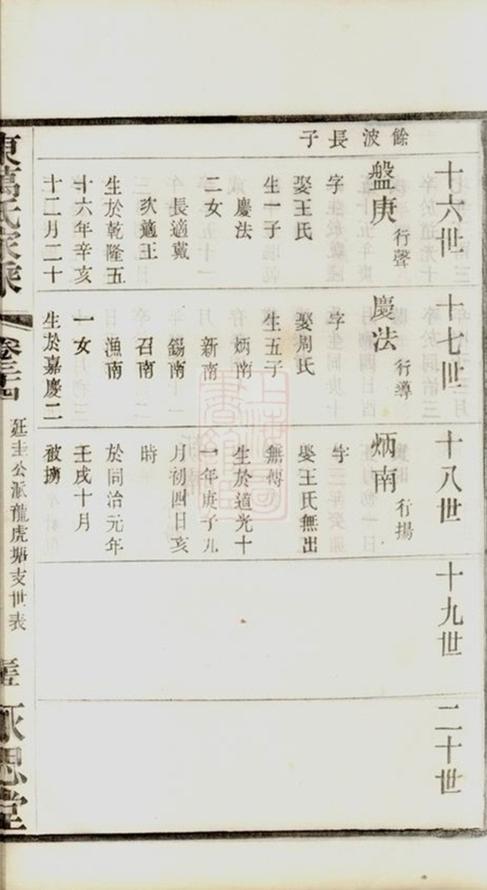 十六世
餘波長子
盤庚 行聲
字
娶王氏
生一子
慶法
二女
長適戴
次適王
生於乾隆五
十六年辛亥
十二月二十
十七世
慶法 行導
字
娶周氏
生五子
炳南
新南
錫南
召南
漁南
一女
生於嘉慶二
十八世
炳南 行揚
字
娶王氏無出
無傳
生於道光十
一年庚子九
月初四日亥
時
於同治元年
壬戌十月
被擄
十九世
二十世
萬氏家乘
廷圭公派龍虎塘支世表
永思堂